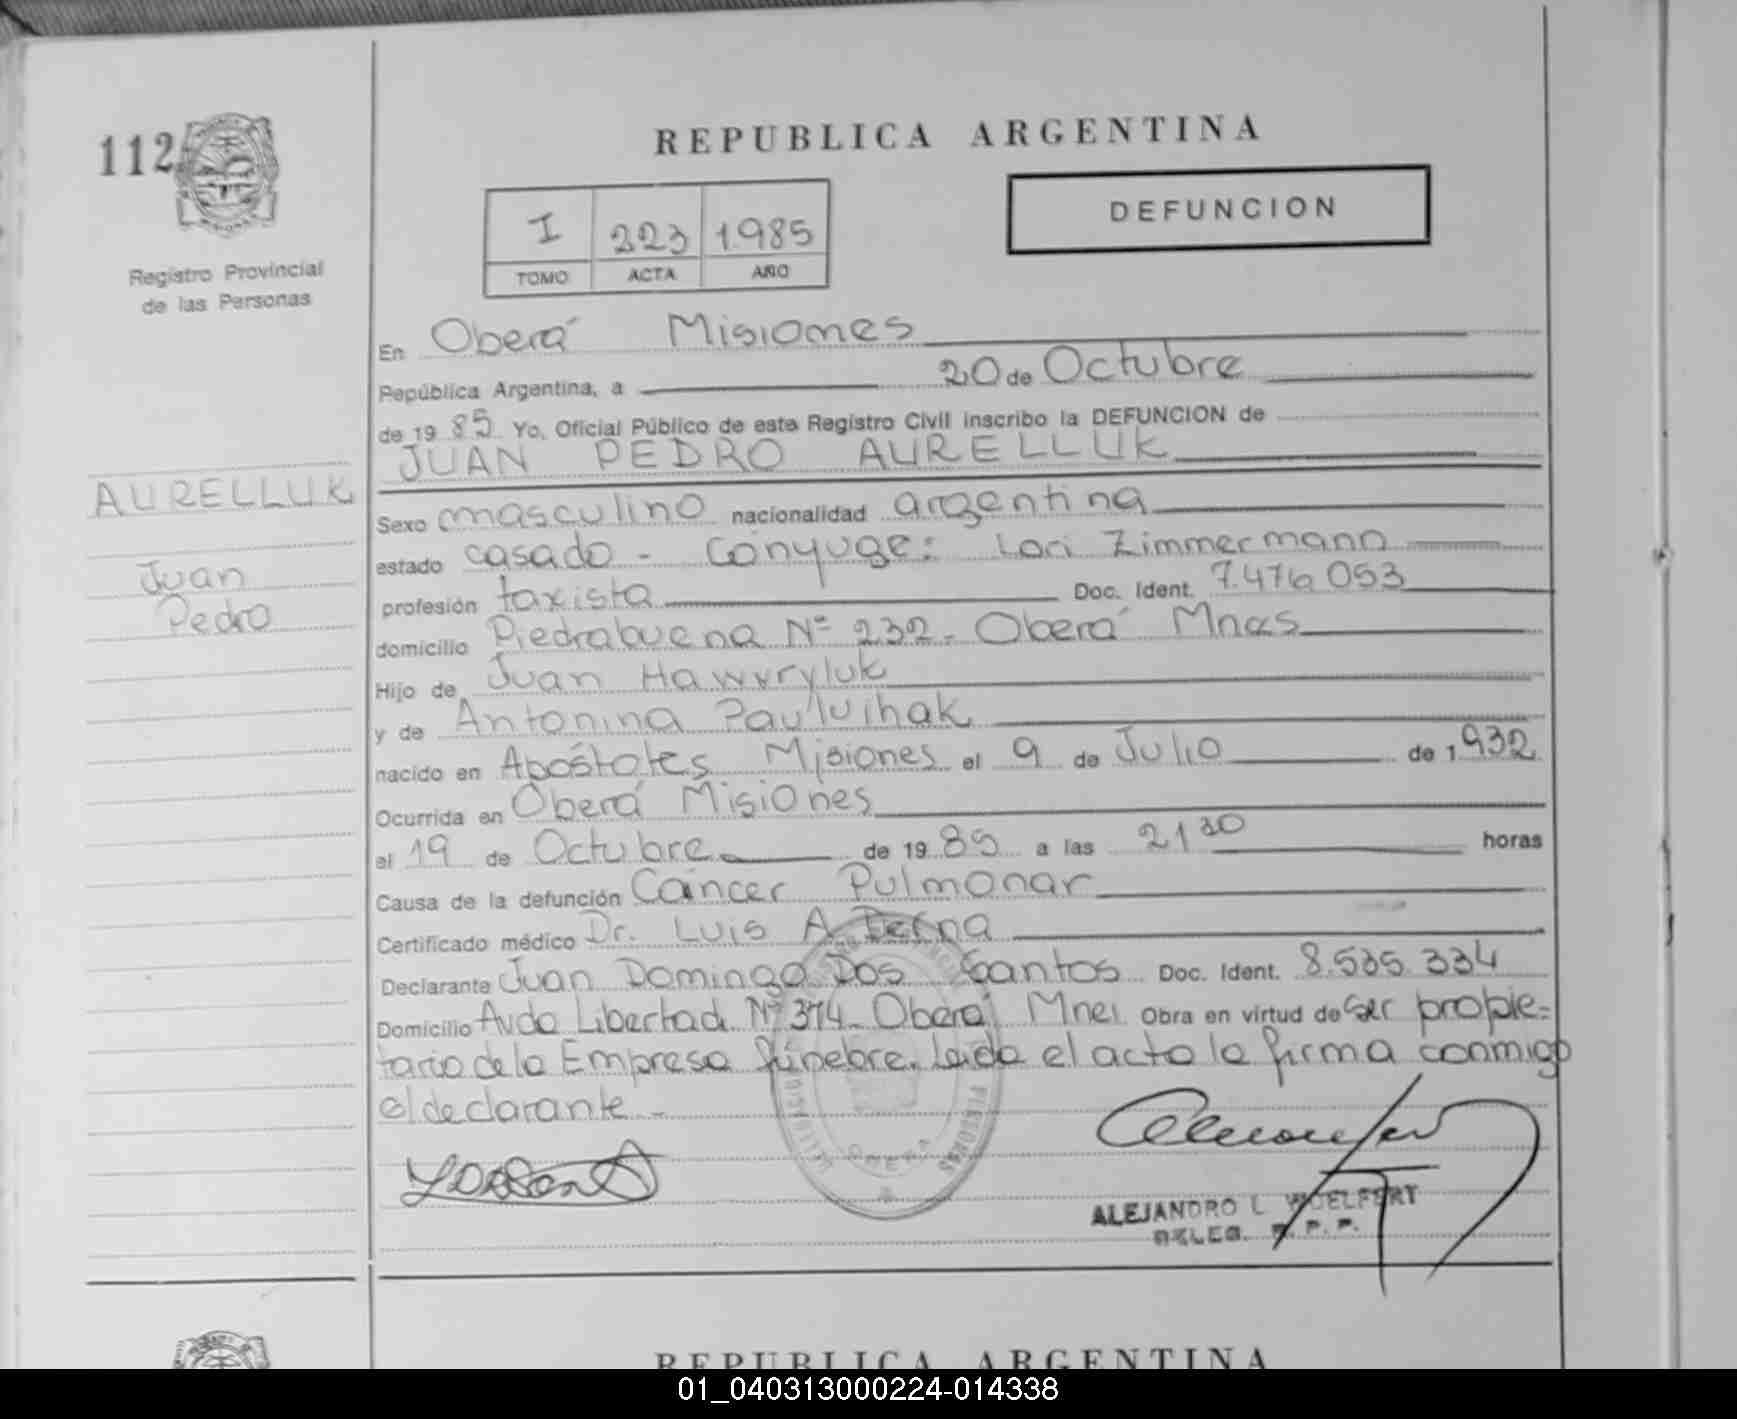 112
REPUBLICA ARGENTINA
DEFUNCION
I 223 1.985
TOMO ACTA AÑO
Registro Provincial
de las Personas
En Oberá Misiones
República Argentina, a 20 de Octubre
de 19 85 Yo, Oficial Público de este Registro Civil inscribo la DEFUNCION de
JUAN PEDRO AURELLUK
AURELLUK
Juan
Pedro
Sexo masculino nacionalidad argentina
estado casado - Cónyuge: Lori Zimmermann
profesión taxista Doc. Ident. 7.476 053
domicilio Piedrabuena Nº 232 - Oberá Mnes
Hijo de Juan Hawvryluk
y de Antonina Pauluihak
nacido en Apóstoles Misiones el 9 de Julio de 1 932
Ocurrida en Oberá Misiones
el 19 de Octubre de 19 85 a las 21 30 horas
Causa de la defunción Cáncer Pulmonar
Certificado médico Dr. Luis A
Declarante Juan Domingo Dos Santos Doc. Ident. 8.535.334
Domicilio Avda Libertad Nº 374 - Oberá Mnes Obra en virtud de ser propie=
tario de la Empresa fúnebre. Leida el acta la firma conmigo
el declarante -
OBERA
ALEJANDRO L. WOELFERT
DELEG. R. P. P.
REPUBLICA ARGENTINA
01_040313000224-014338